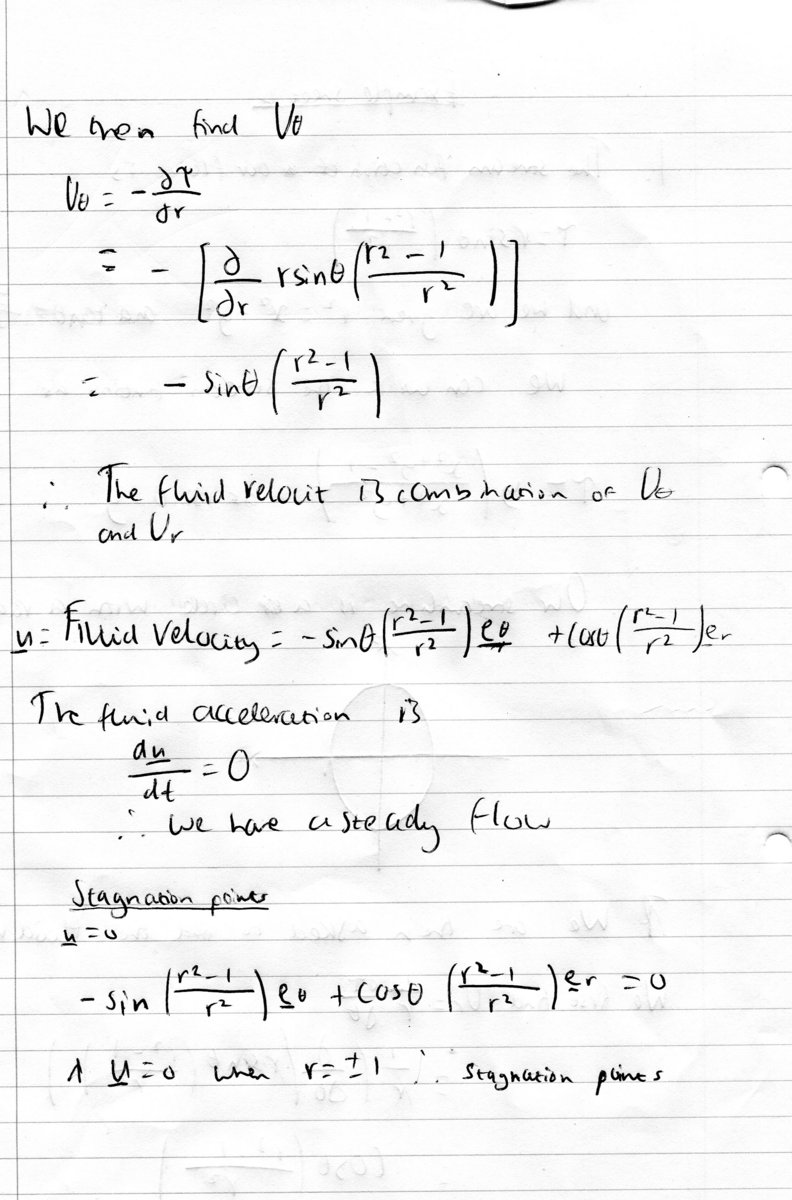 We then find U_θ
U_θ = - ∂Ψ/∂r
= - [∂/∂r r sinθ (r² - 1 / r²)]
= - sinθ (r² - 1 / r²)
∴ The fluid velocit is combination of U_θ
and U_r
u = Fluid Velocity = - sinθ (r² - 1 / r²) e_θ + cosθ (r² - 1 / r²) e_r
The fluid acceleration is
du/dt = 0
∴ we have a steady flow
Stagnation points
u = 0
- sin (r² - 1 / r²) e_θ + cosθ (r² - 1 / r²) e_r = 0
u = 0 when r = ±1 ∴ stagnation points